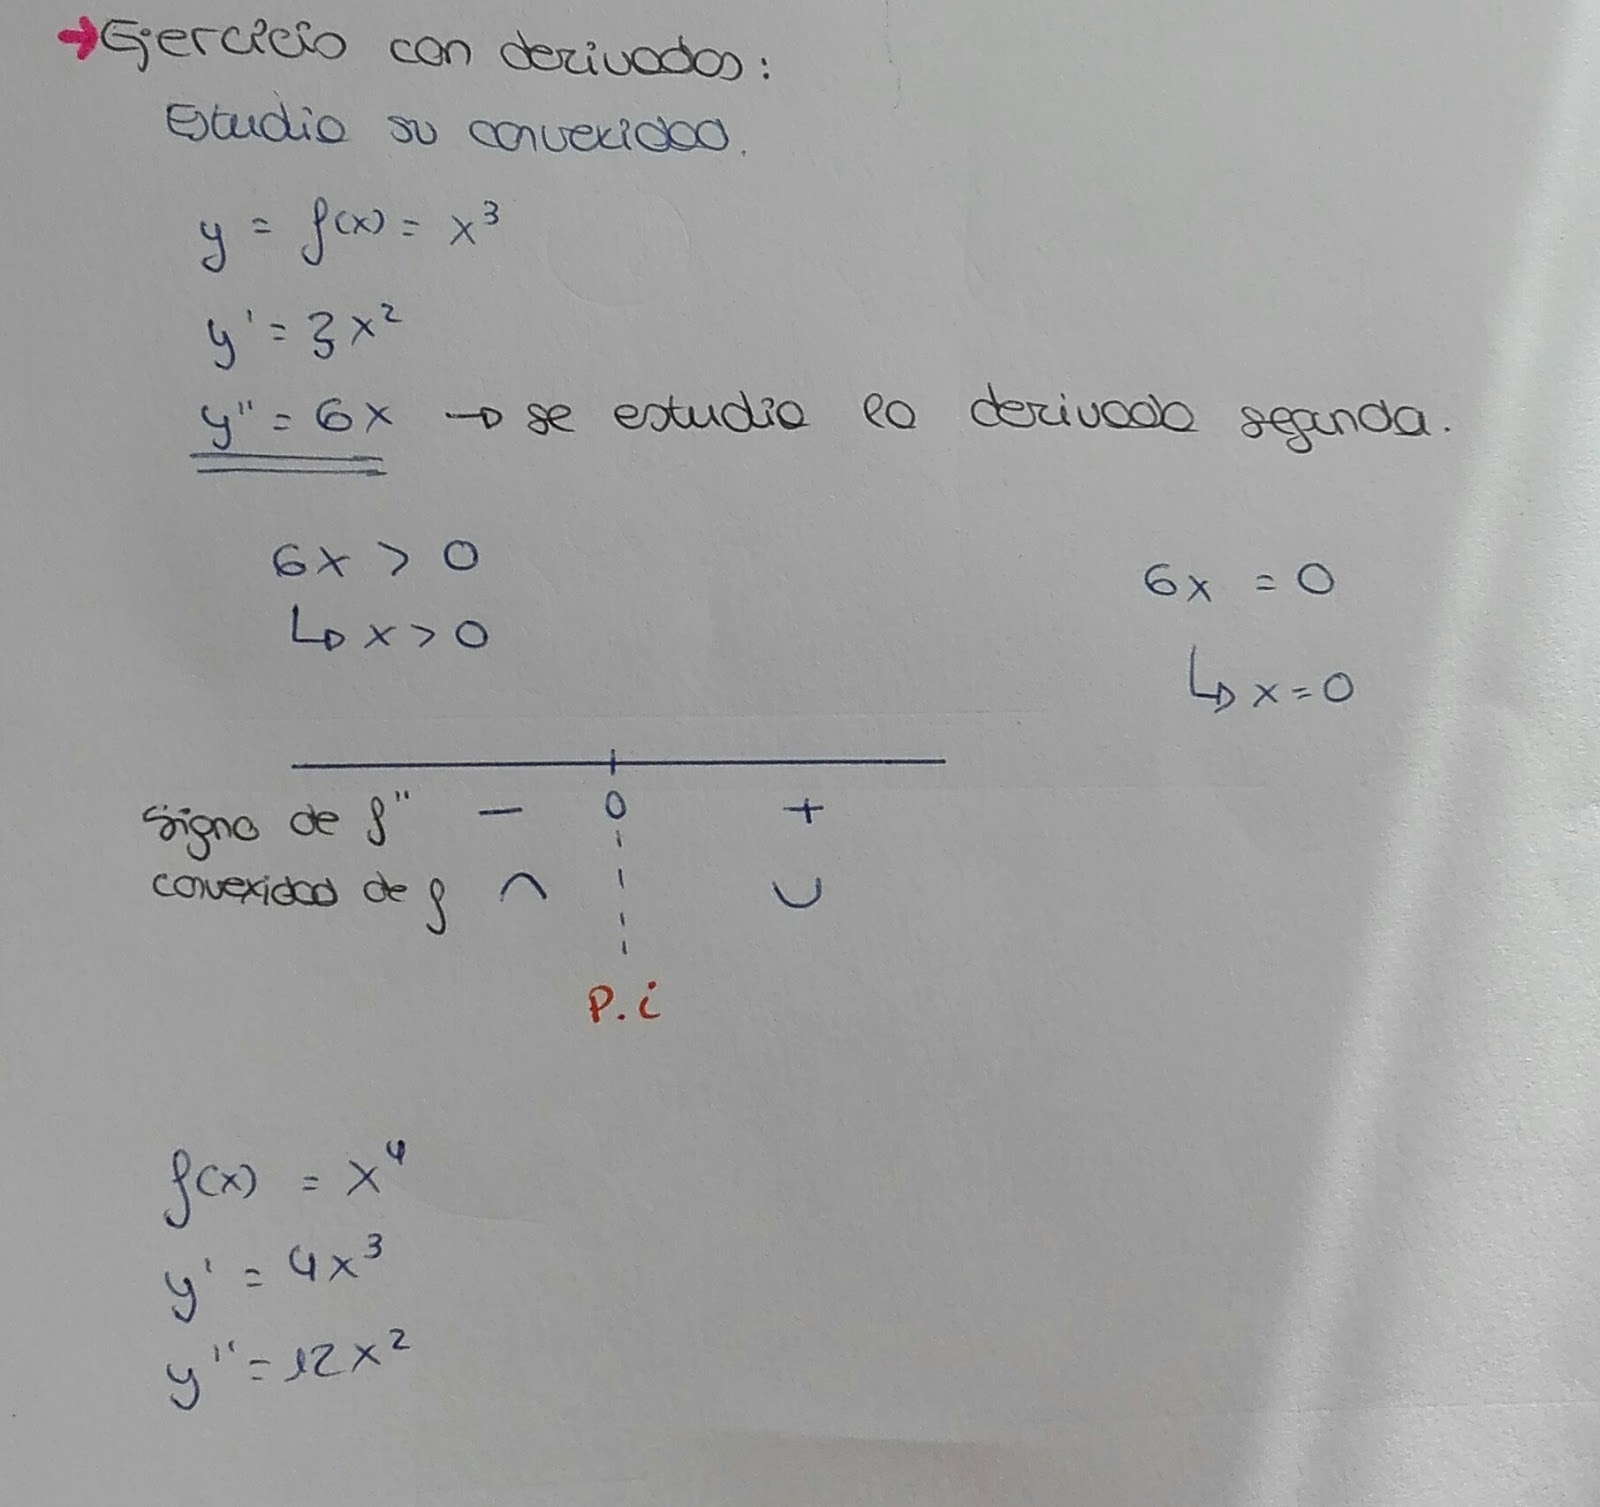 → Ejercicio con derivadas:
Estudia su convexidad.
y = f(x) = x³
y' = 3x²
y'' = 6x → se estudia la derivada segunda.
6x > 0
↳ x > 0
6x = 0
↳ x = 0
signo de f'' − 0 +
convexidad de f ∩ ∪
P.i
f(x) = x⁴
y' = 4x³
y'' = 12x²